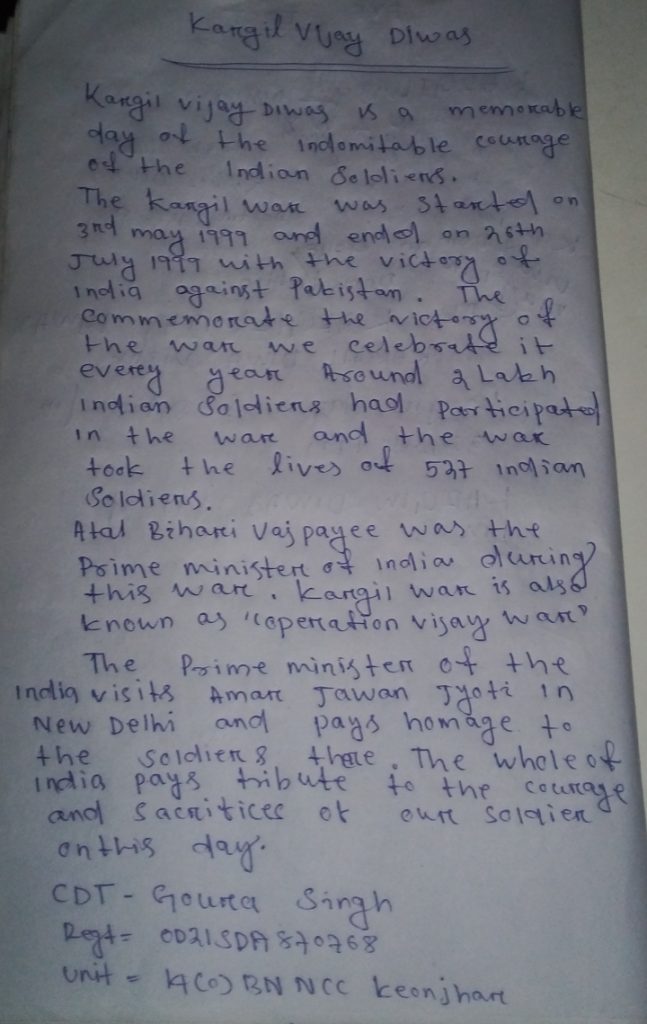 Kargil Vijay Diwas
Kargil vijay Diwas is a memorable
day of the indomitable courage
of the Indian Soldiers.
The Kargil war was started on
3rd may 1999 and ended on 26th
July 1999 with the victory of
india against Pakistan. The
commemorate the victory of
the war we celebrate it
everey year Around 2 Lakh
indian Soldiers had participated
in the war and the war
took the lives of 527 indian
Soldiers.
Atal Bihari Vajpayee was the
Prime minister of india during
this war. Kargil war is also
known as "operation vijay war"
The Prime minister of the
india visits Amar Jawan Jyoti in
New Delhi and pays homage to
the soldiers there. The whole of
india pays tribute to the courage
and sacrifices of our soldier
on this day.
CDT - Goura Singh
Regt = OD21SDA870768
unit = (O) BN NCC Keonjhar